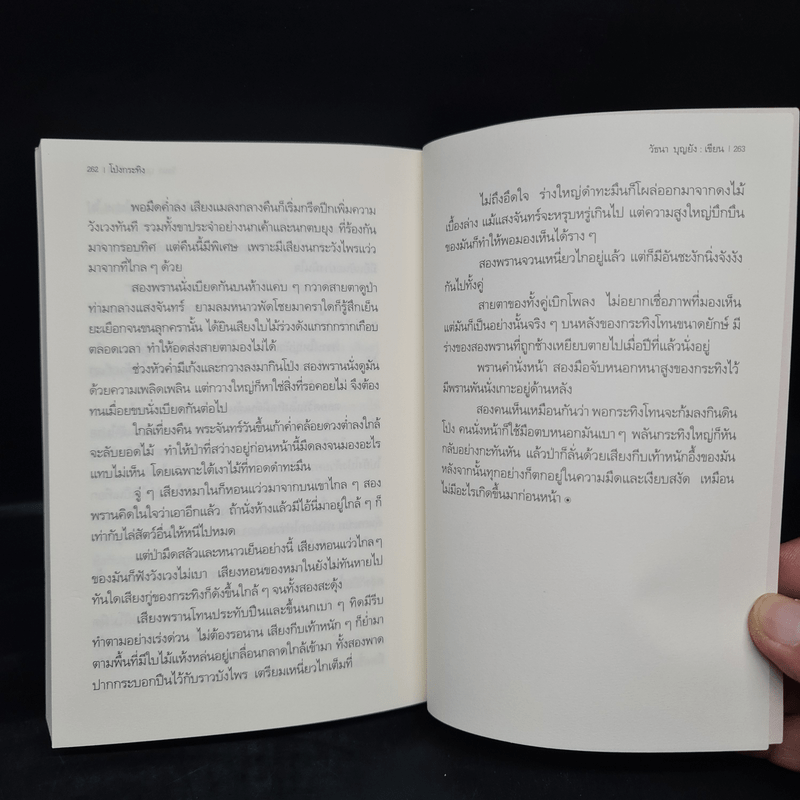 262 | โป่งกระทิง
พอมืดค่ำลง เสียงแมลงกลางคืนก็เริ่มกรีดปีกเพิ่มความ
วังเวงทันที รวมทั้งขาประจำอย่างนกเค้าและนกตบยุง ที่ร้องกัน
มาจากรอบทิศ แต่คืนนี้มีพิเศษ เพราะมีเสียงนกระวังไพรแว่ว
มาจากที่ไกล ๆ ด้วย
สองพรานนั่งเบียดกันบนห้างแคบ ๆ กวาดสายตาดูป่า
ท่ามกลางแสงจันทร์ ยามลมหนาวพัดโชยมาคราใดก็รู้สึกเย็น
ยะเยือกจนขนลุกครานั้น ได้ยินเสียงใบไม้ร่วงดังแกรกกรากเกือบ
ตลอดเวลา ทำให้อดส่งสายตามองไม่ได้
ช่วงหัวค่ำมีเก้งและกวางลงมากินโป่ง สองพรานนั่งดูมัน
ด้วยความเพลิดเพลิน แต่กวางใหญ่ก็หาใช่สิ่งที่รอคอยไม่ จึงต้อง
ทนเมื่อยขบนั่งเบียดกันต่อไป
ใกล้เที่ยงคืน พระจันทร์วันขึ้นเก้าค่ำคล้อยดวงต่ำลงใกล้
จะลับยอดไม้ ทำให้ป่าที่สว่างอยู่ก่อนหน้านี้มืดลงจนมองอะไร
แทบไม่เห็น โดยเฉพาะใต้เงาไม้ที่ทอดดำทะมึน
จู่ ๆ เสียงหมาในก็หอนแว่วมาจากบนเขาไกล ๆ สอง
พรานคิดในใจว่าเอาอีกแล้ว ถ้านั่งห้างแล้วมีไอ้นี่มาอยู่ใกล้ ๆ ก็
เท่ากับไล่สัตว์อื่นให้หนีไปหมด
แต่ป่ามืดสลัวและหนาวเย็นอย่างนี้ เสียงหอนแว่วไกลๆ
ของมันก็ฟังวังเวงไม่เบา เสียงหอนของหมาในยังไม่ทันหายไป
ทันใดเสียงกู่ของกระทิงก็ดังขึ้นใกล้ ๆ จนทั้งสองสะดุ้ง
เสียงพรานโทนประทับปืนและขึ้นนกเบา ๆ ทิดมีรีบ
ทำตามอย่างเร่งด่วน ไม่ต้องรอนาน เสียงกีบเท้าหนัก ๆ ก็ย่ำมา
ตามพื้นที่มีใบไม้แห้งหล่นอยู่เกลื่อนกลาดใกล้เข้ามา ทั้งสองพาด
ปากกระบอกปืนไว้กับราวบังไพร เตรียมเหนี่ยวไกเต็มที่
วัธนา บุญยัง : เขียน | 263
ไม่ถึงอึดใจ ร่างใหญ่ดำทะมึนก็โผล่ออกมาจากดงไม้
เบื้องล่าง แม้แสงจันทร์จะหรุบหรู่เกินไป แต่ความสูงใหญ่บึกบึน
ของมันก็ทำให้พอมองเห็นได้ราง ๆ
สองพรานจวนเหนี่ยวไกอยู่แล้ว แต่ก็มีอันชะงักนิ่งจังงัง
กันไปทั้งคู่
สายตาของทั้งคู่เบิกโพลง ไม่อยากเชื่อภาพที่มองเห็น
แต่มันก็เป็นอย่างนั้นจริง ๆ บนหลังของกระทิงโทนขนาดยักษ์ มี
ร่างของสองพรานที่ถูกช้างเหยียบตายไปเมื่อปีที่แล้วนั่งอยู่
พรานคำนั่งหน้า สองมือจับหนอกหนาสูงของกระทิงไว้
มีพรานพันนั่งเกาะอยู่ด้านหลัง
สองคนเห็นเหมือนกันว่า พอกระทิงโทนจะก้มลงกินดิน
โป่ง คนนั่งหน้าก็ใช้มือตบหนอกมันเบา ๆ พลันกระทิงใหญ่ก็หัน
กลับอย่างกะทันหัน แล้วป่าก็ลั่นด้วยเสียงกีบเท้าหนักอึ้งของมัน
หลังจากนั้นทุกอย่างก็ตกอยู่ในความมืดและเงียบสงัด เหมือน
ไม่มีอะไรเกิดขึ้นมาก่อนหน้า